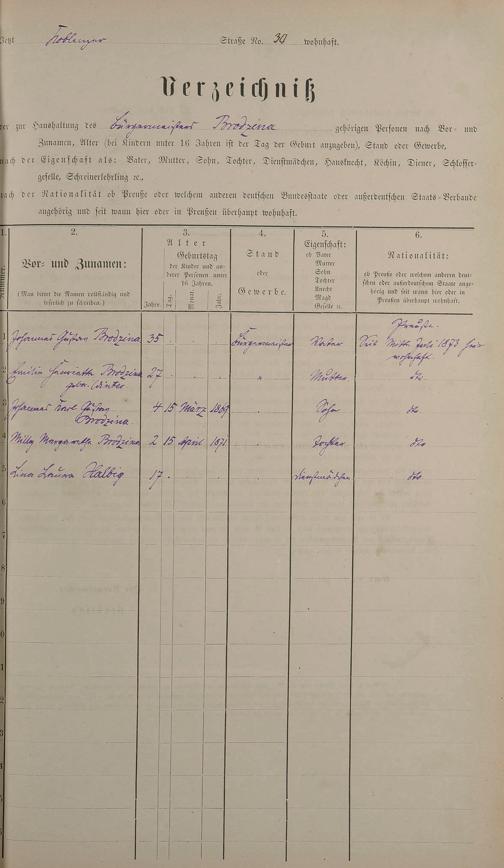 Jetzt Koblenzer Straße No. 30 wohnhaft.
Verzeichniß
der zur Haushaltung des Bürgermeisters Brodzina gehörigen Personen nach Vor- und
Zunamen, Alter (bei Kindern unter 16 Jahren ist der Tag der Geburt anzugeben), Stand oder Gewerbe,
nach der Eigenschaft als: Vater, Mutter, Sohn, Tochter, Dienstmädchen, Hausknecht, Köchin, Diener, Schlosser-
geselle, Schreinerlehrling ec.,
nach der Nationalität ob Preuße oder welchem anderen deutschen Bundesstaate oder außerdeutschen Staats-Verbande
angehörig und seit wann hier oder in Preußen überhaupt wohnhaft.
1. 2. 3. 4. 5. 6.
Nummer.
Vor- und Zunamen:
(Man bittet die Namen vollständig und
leserlich zu schreiben.)
Alter
Geburtstag
der Kinder und an-
derer Personen unter
16 Jahren.
Jahre. Tag. Monat. Jahr.
Stand
oder
Gewerbe.
Eigenschaft:
ob Vater
Mutter
Sohn
Tochter
Knecht
Magd
Geselle ec.
Nationalität:
ob Preuße oder welchem anderen deut-
schen oder außerdeutschen Staate ange-
hörig und seit wann hier oder in
Preußen überhaupt wohnhaft.
1 Johannes Gustav Brodzina 35 Bürgermeister Vater Preuße. Seit Mitte 1873 hier
wohnhaft.
2 Emilie Henriette Brodzina 27 " Mutter dto.
geb.
3 Johannes Karl Gustav 4 15 März 1869 Sohn dto.
Brodzina
4 Willy Margarethe Brodzina 2 15 April 1871 Tochter dto.
5 Lina Laura Halbig 17 Dienstmädchen dto.
6
7
8
9
0
1
2
3
4
5
6